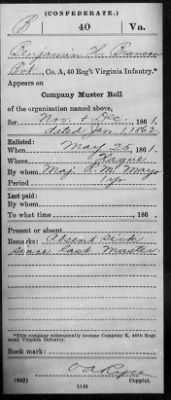 (CONFEDERATE.)
B 40 Va.
Benjamin H. Branson
Pvt., Co. A, 40 Reg't Virginia Infantry.*
Appears on
Company Muster Roll
of the organization named above,
for Nov & Dec, 1861.
dated Jan 1, 1862
Enlisted:
When May 25, 1861.
Where Hague
By whom Maj. R. M. Mayo
Period 1 yr
Last paid:
By whom
To what time , 186 .
Present or absent
Remarks: Absent Sick
Since last Muster
*This company subsequently became Company K, 40th Regiment Virginia Infantry.
Book mark:
(642)
Copyist.